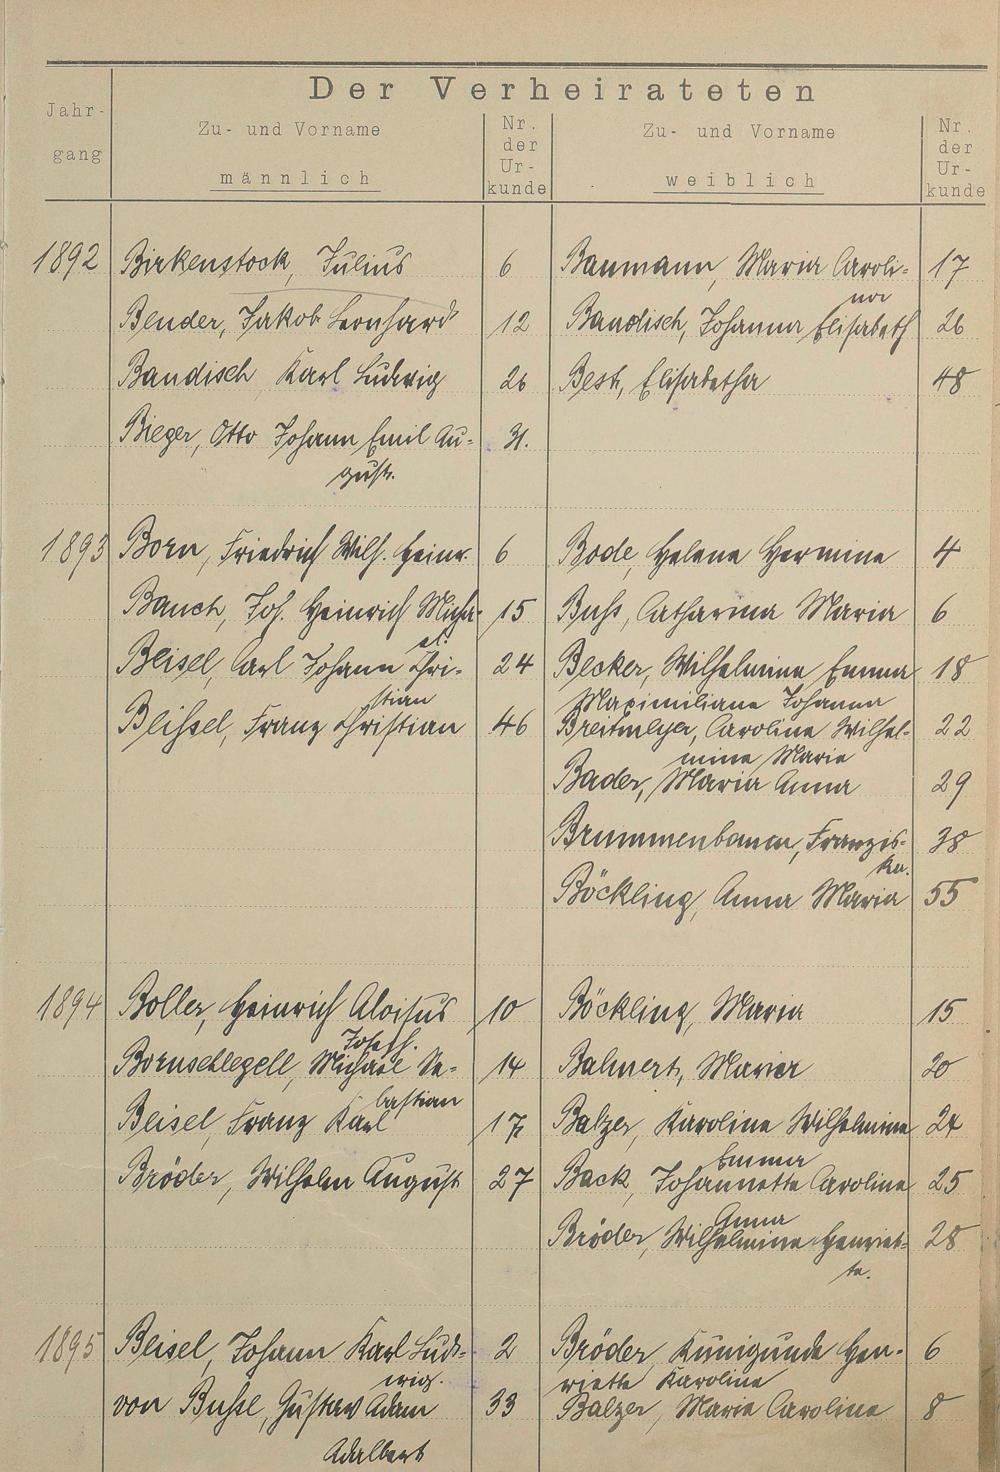 Der Verheirateten
Jahr-
gang
Zu- und Vorname
männlich
Nr.
der
Ur-
kunde
Zu- und Vorname
weiblich
Nr.
der
Ur-
kunde
1892 Birkenstock, Julius 6 Baumann, Maria Caroli- 17
na
Bender, Jakob Leonhard 12 Baudisch, Johanna Elisabeth 26
Baudisch Karl Ludwig 26 Best, Elisabetha 48
Bieger, Otto Johann Emil Au- 31.
gust.
1893 Born, Friedrich Wilh. Heinr. 6 Bode, Helene Hermine 4
Bauch, Joh. Heinrich Micha- 15 Buhs, Catharina Maria 6
el.
Beisel, Carl Johann Chri- 24 Becker, Wilhelmine Emma 18
stian Maximiliane Johanna
Beissel, Franz Christian 46 Breitmeyer, Caroline Wilhel- 22
mine Marie
Bader, Maria Anna 29
Brummenbaum, Franzis- 38
ka.
Böckling, Anna Maria 55
1894 Boller, Heinrich Aloisus 10 Böckling, Maria 15
Josef.
Bornschlegell, Michael Se- 14 Balmert, Maria 20
bastian
Beisel, Franz Karl 17 Balzer, Karoline Wilhelmine 24
Emma
Bröder, Wilhelm August 27 Back, Johannette Caroline 25
Anna
Bröder, Wilhelmine Henriet- 28
te.
1895 Beisel, Johann Karl Lud- 2 Bröder, Kunigunde Hen- 6
wig. riette Karoline
von Busse, Gustav Adam 33 Balzer, Marie Caroline 8
Adalbert